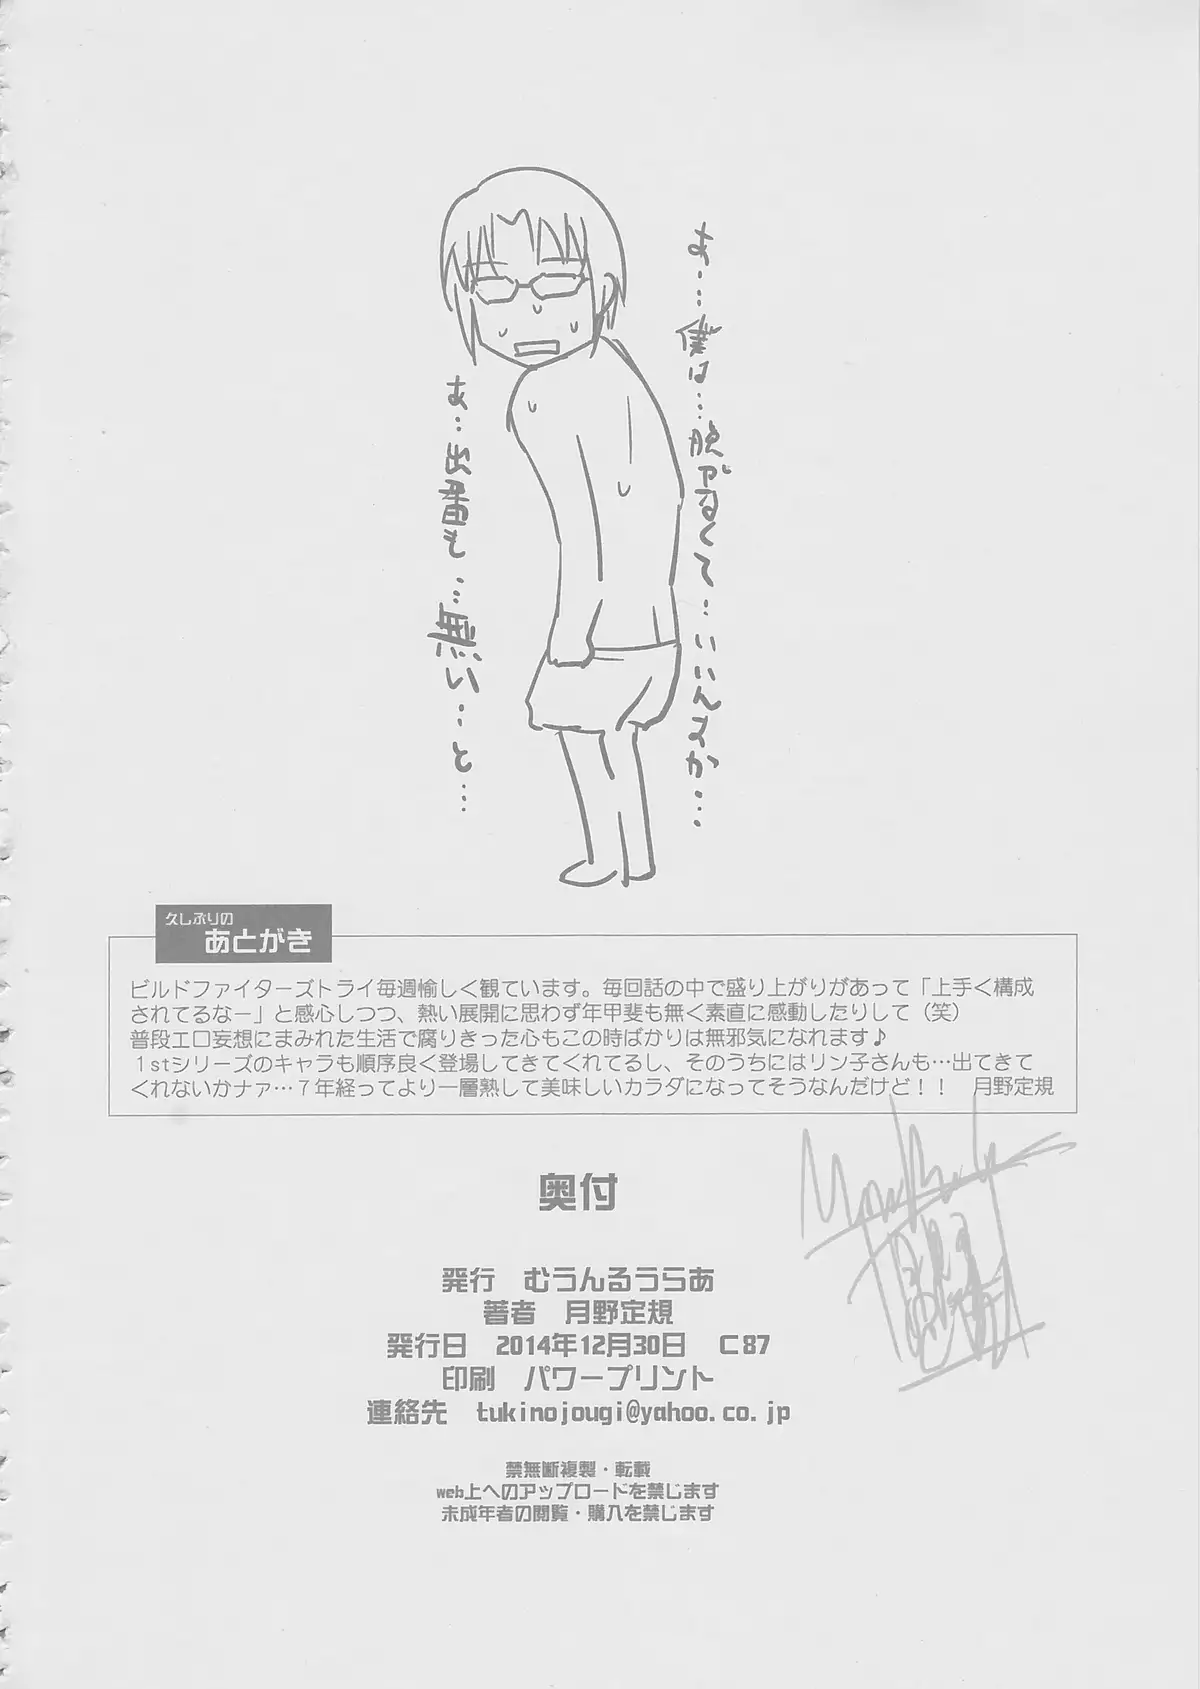 あ…僕は…脱がなくて…いいんすか…
あ…出番も…無い…と…
久しぶりの
あとがき
ビルドファイターズトライ毎週愉しく観ています。毎回話の中で盛り上がりがあって「上手く構成
されてるなー」と感心しつつ、熱い展開に思わず年甲斐も無く素直に感動したりして（笑）
普段エロ妄想にまみれた生活で腐りきった心もこの時ばかりは無邪気になれます♪
1stシリーズのキャラも順序良く登場してきてくれてるし、そのうちにはリン子さんも…出てきて
くれないかナァ…７年経ってより一層熟して美味しいカラダになってそうなんだけど！！　月野定規
奥付
発行　むうんるうらあ
著者　月野定規
発行日　2014年12月30日　C87
印刷　パワープリント
連絡先　tukinojougi@yahoo.co.jp
禁無断複製・転載
web上へのアップロードを禁じます
未成年者の閲覧・購入を禁じます